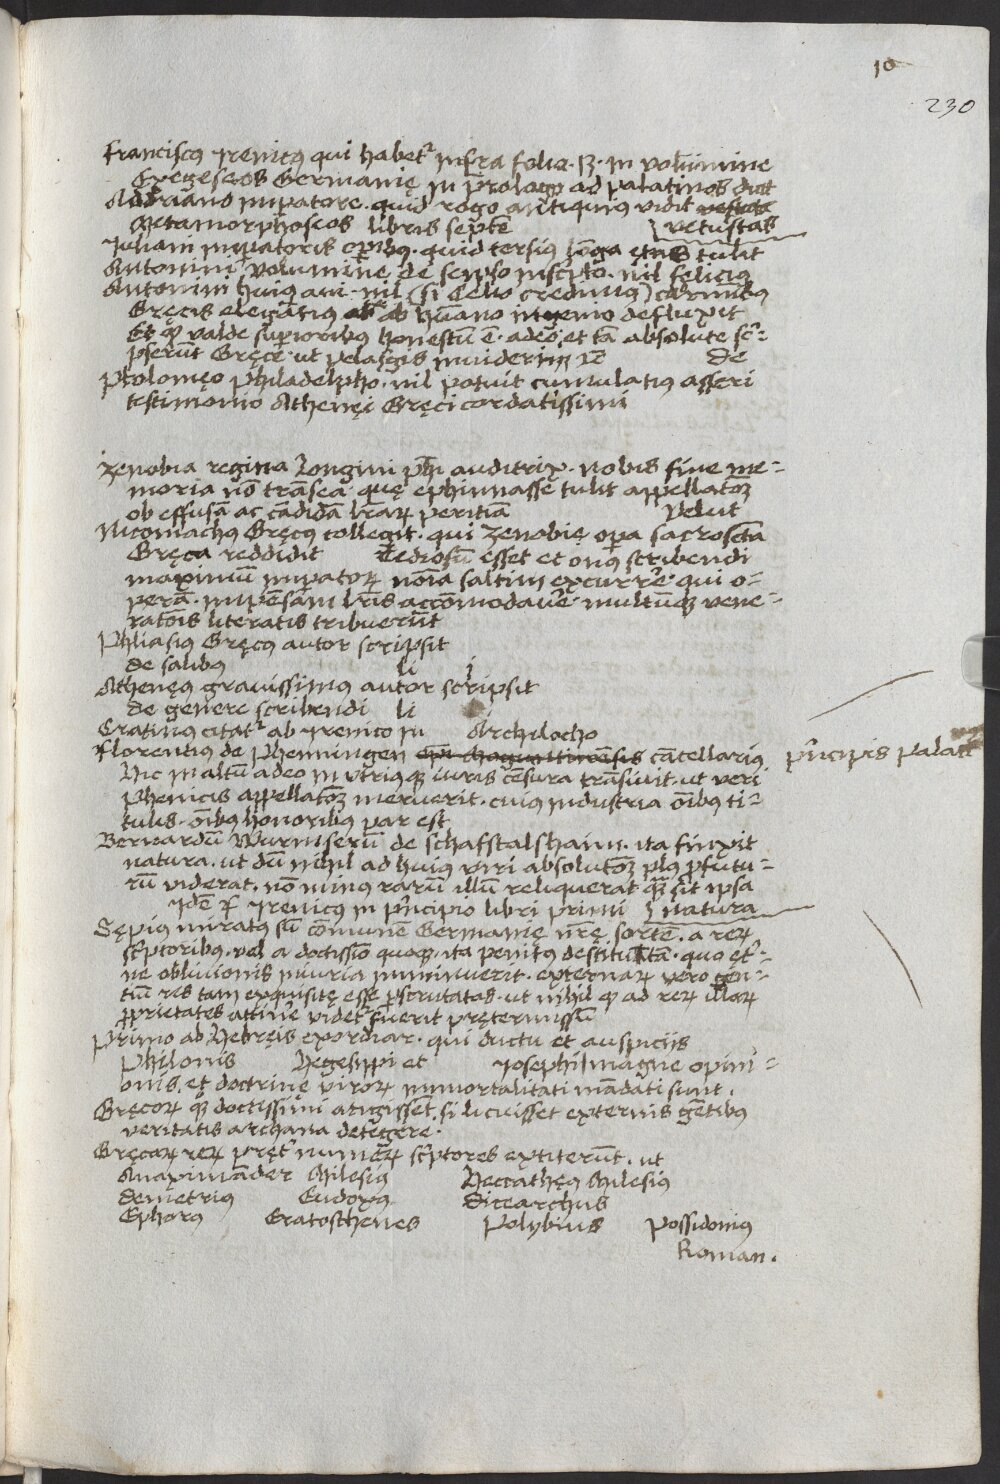 10
230
Franciscus Irenicus qui habetur infra folio 13 in volumine
Exegeseos Germanię in prologo ad palatinos dicit
Adriano impatore. quid rogo antiquius vidit
Metamorphoseos libris septē vetustas
Iuliani impatoris opibus. quid tersius lōga ętas tulit
Antonini volumine de seipso inscripto. nil felicius
Antonini huius aui. nil (si Celio credimus) carminibus
Gręcis elegātius ab hūano ingenio defluxit
Et quod valde superioribus honestum ē. adeo, et tā absolute scri=
pserūt Gręce. ut pelasgis inuiderim de
Ptolomęo Philadelpho. nil potuit cumulatius asseri
testimonio Athenęi Gręci cordatissimi
Zenobia regina Longini phi auditrix. nobis sine me=
moria nō trāseat quę ephinnasse tulit appellationem
ob effusā ac cādidā lrarum peritiā Velut
Nicomachus Gręcus collegit. qui Zenobię opa sacroscta
Gręca reddidit Tediosū esset et onus scribendi
maximū impatorum noīa saltim excurrere qui o=
perā. impēsam lris accōmodauere. multumque vene=
rationis literatis tribuerūt
Phliasius Gręcus autor scripsit
de salibus li j
Athenęus grauissimus autor scripsit
de genere scribendi li
Cratinus citatur ab Irenico in Archilocho
Florentius de Phenningen cācellarius principis palati
Hic in altū adeo in vtriusque iuris cēsura trāsiuit. ut veri
Phenicis appellationem meruerit. cuius industria oībus ti=
tulis. oībus honoribus par est
Bernardū Wurmserū de schafftalshaim. ita finxit
natura. ut dū nihil ad huius viri absolutionem plus profutu=
rū viderat. non minus rarū illū reliquerat quam sit ipsa
Idē Fr Irenicus in principio libri primi natura
Sępius miratus sū cōmunē Germanię nrę sortē. a rerum
scriptoribus. vel a doctissimo quoque. ita penitus destitutā. quo et=
ne obliuionis iniuria inminuerit. externarum vero gen=
tiū res tam exquisitę esse perscrutatas. ut nihil quod ad rerum illarum
proprietates attinere videtur fuerit prętermissū
Primo ab Hebręis exordiar. qui ductu et auspiciis
Philonis Hegesippi et Iosephi magne opini=
onis, et doctrinę virorum immortalitati mādati sunt.
Gręcorum quod doctissimi atigissēt, si licuisset externis gētibus
veritatis archana detegere.
Gręcarum rerum pręter numerum scriptores extiterūt. ut
Anaximāder Milesius Heccathęus Milesius
demetrius Eudoxus dicearchus
Ephorus Eratosthenes Polybius Possidonius
Roman.